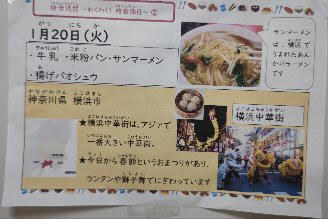 給食週間 ～わくわく！給食旅行～ ②
がつ にち か
1月20日(火)
ぎゅうにゅう こめこ
・牛乳 ・米粉パン・サンマーメン
あ
・揚げパオシュウ
サンマーメン
は、横浜で
うまれたあん
かけラーメン
です
かながわけん よこはまし
神奈川県 横浜市
★横浜中華街は、アジアで
一番大きい中華街。
★今日から春節というおまつりがあり、
ランタンや獅子舞でにぎわっています
横浜中華街